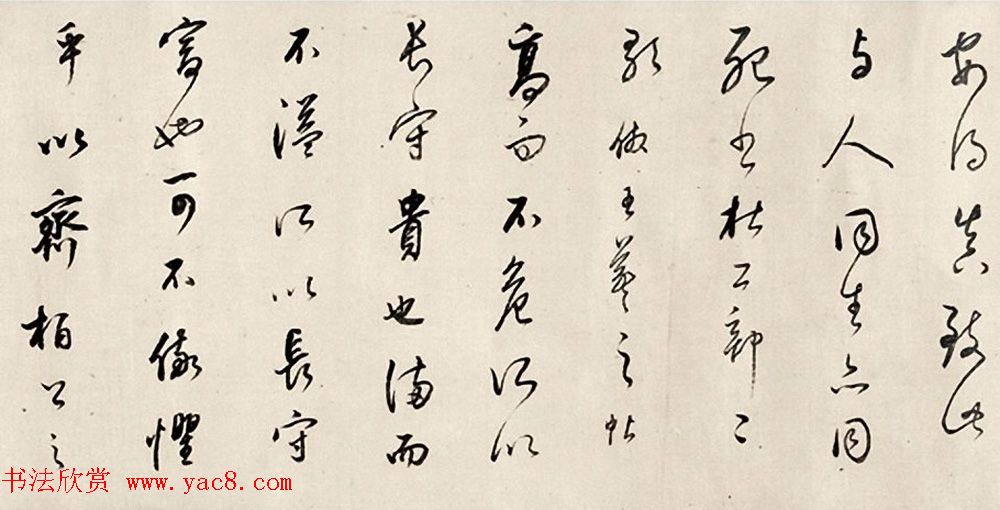 安得真致此
与人同生亦同
死书杜工部二
歌倣王羲之帖
高而不危所以
長守貴也滿而
不溢所以長守
富也可不儆懼
乎以齊桓公之
书法欣赏 www.yac8.com